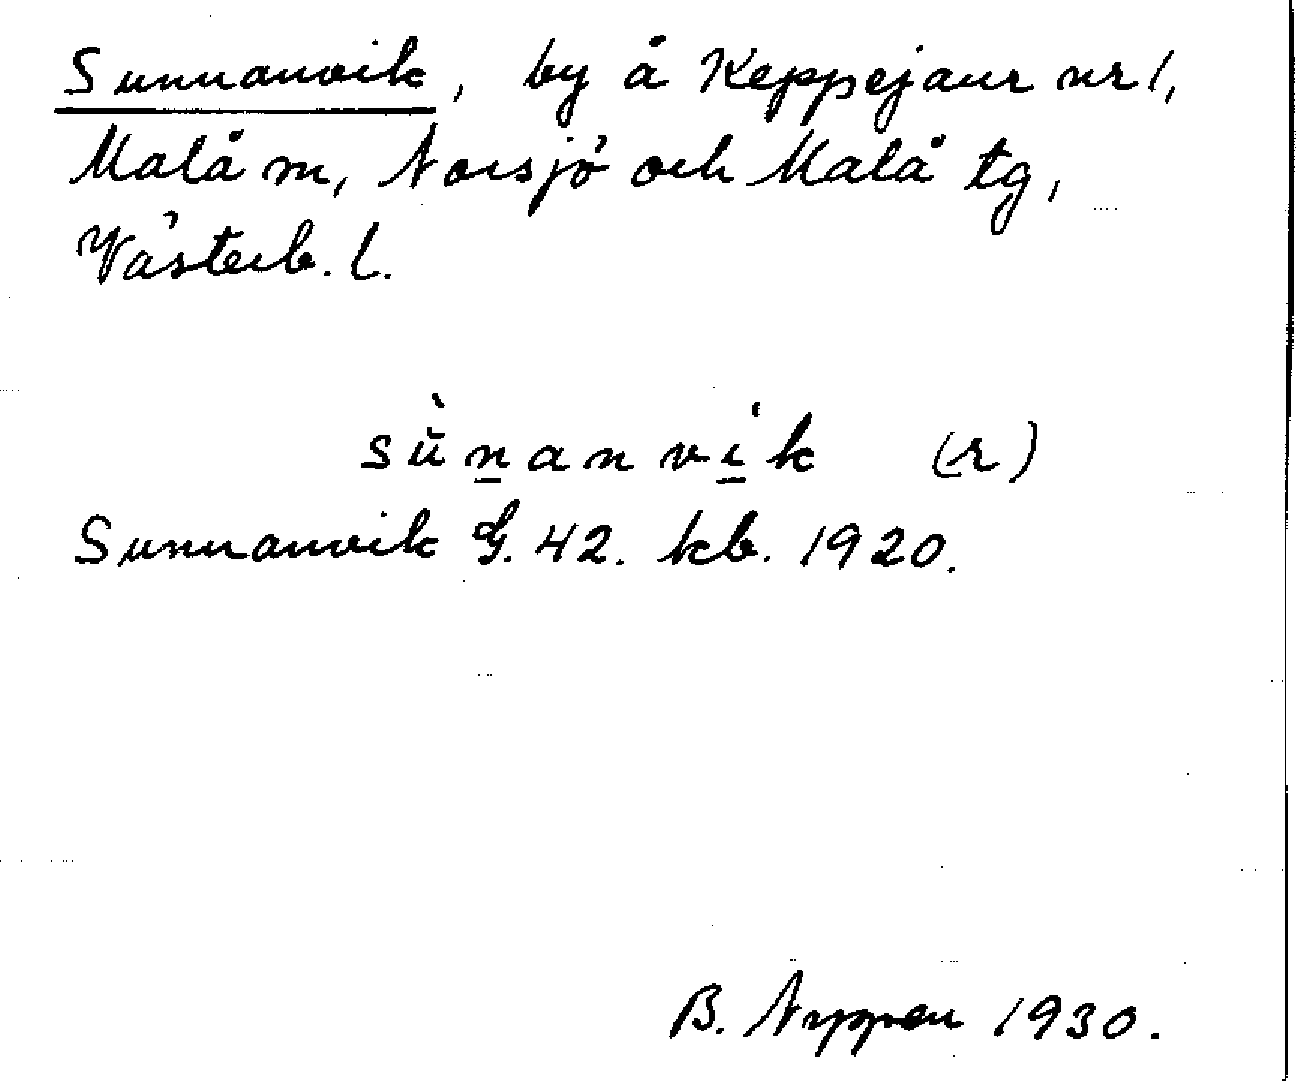 Sunnanvik, by å Keppejaur nr 1,
Malå sn, Norsjö och Malå tg,
Västerb. l.
sùnanvík (r)
Sunnanvik G. 42. kb. 1920.
B. 1930.